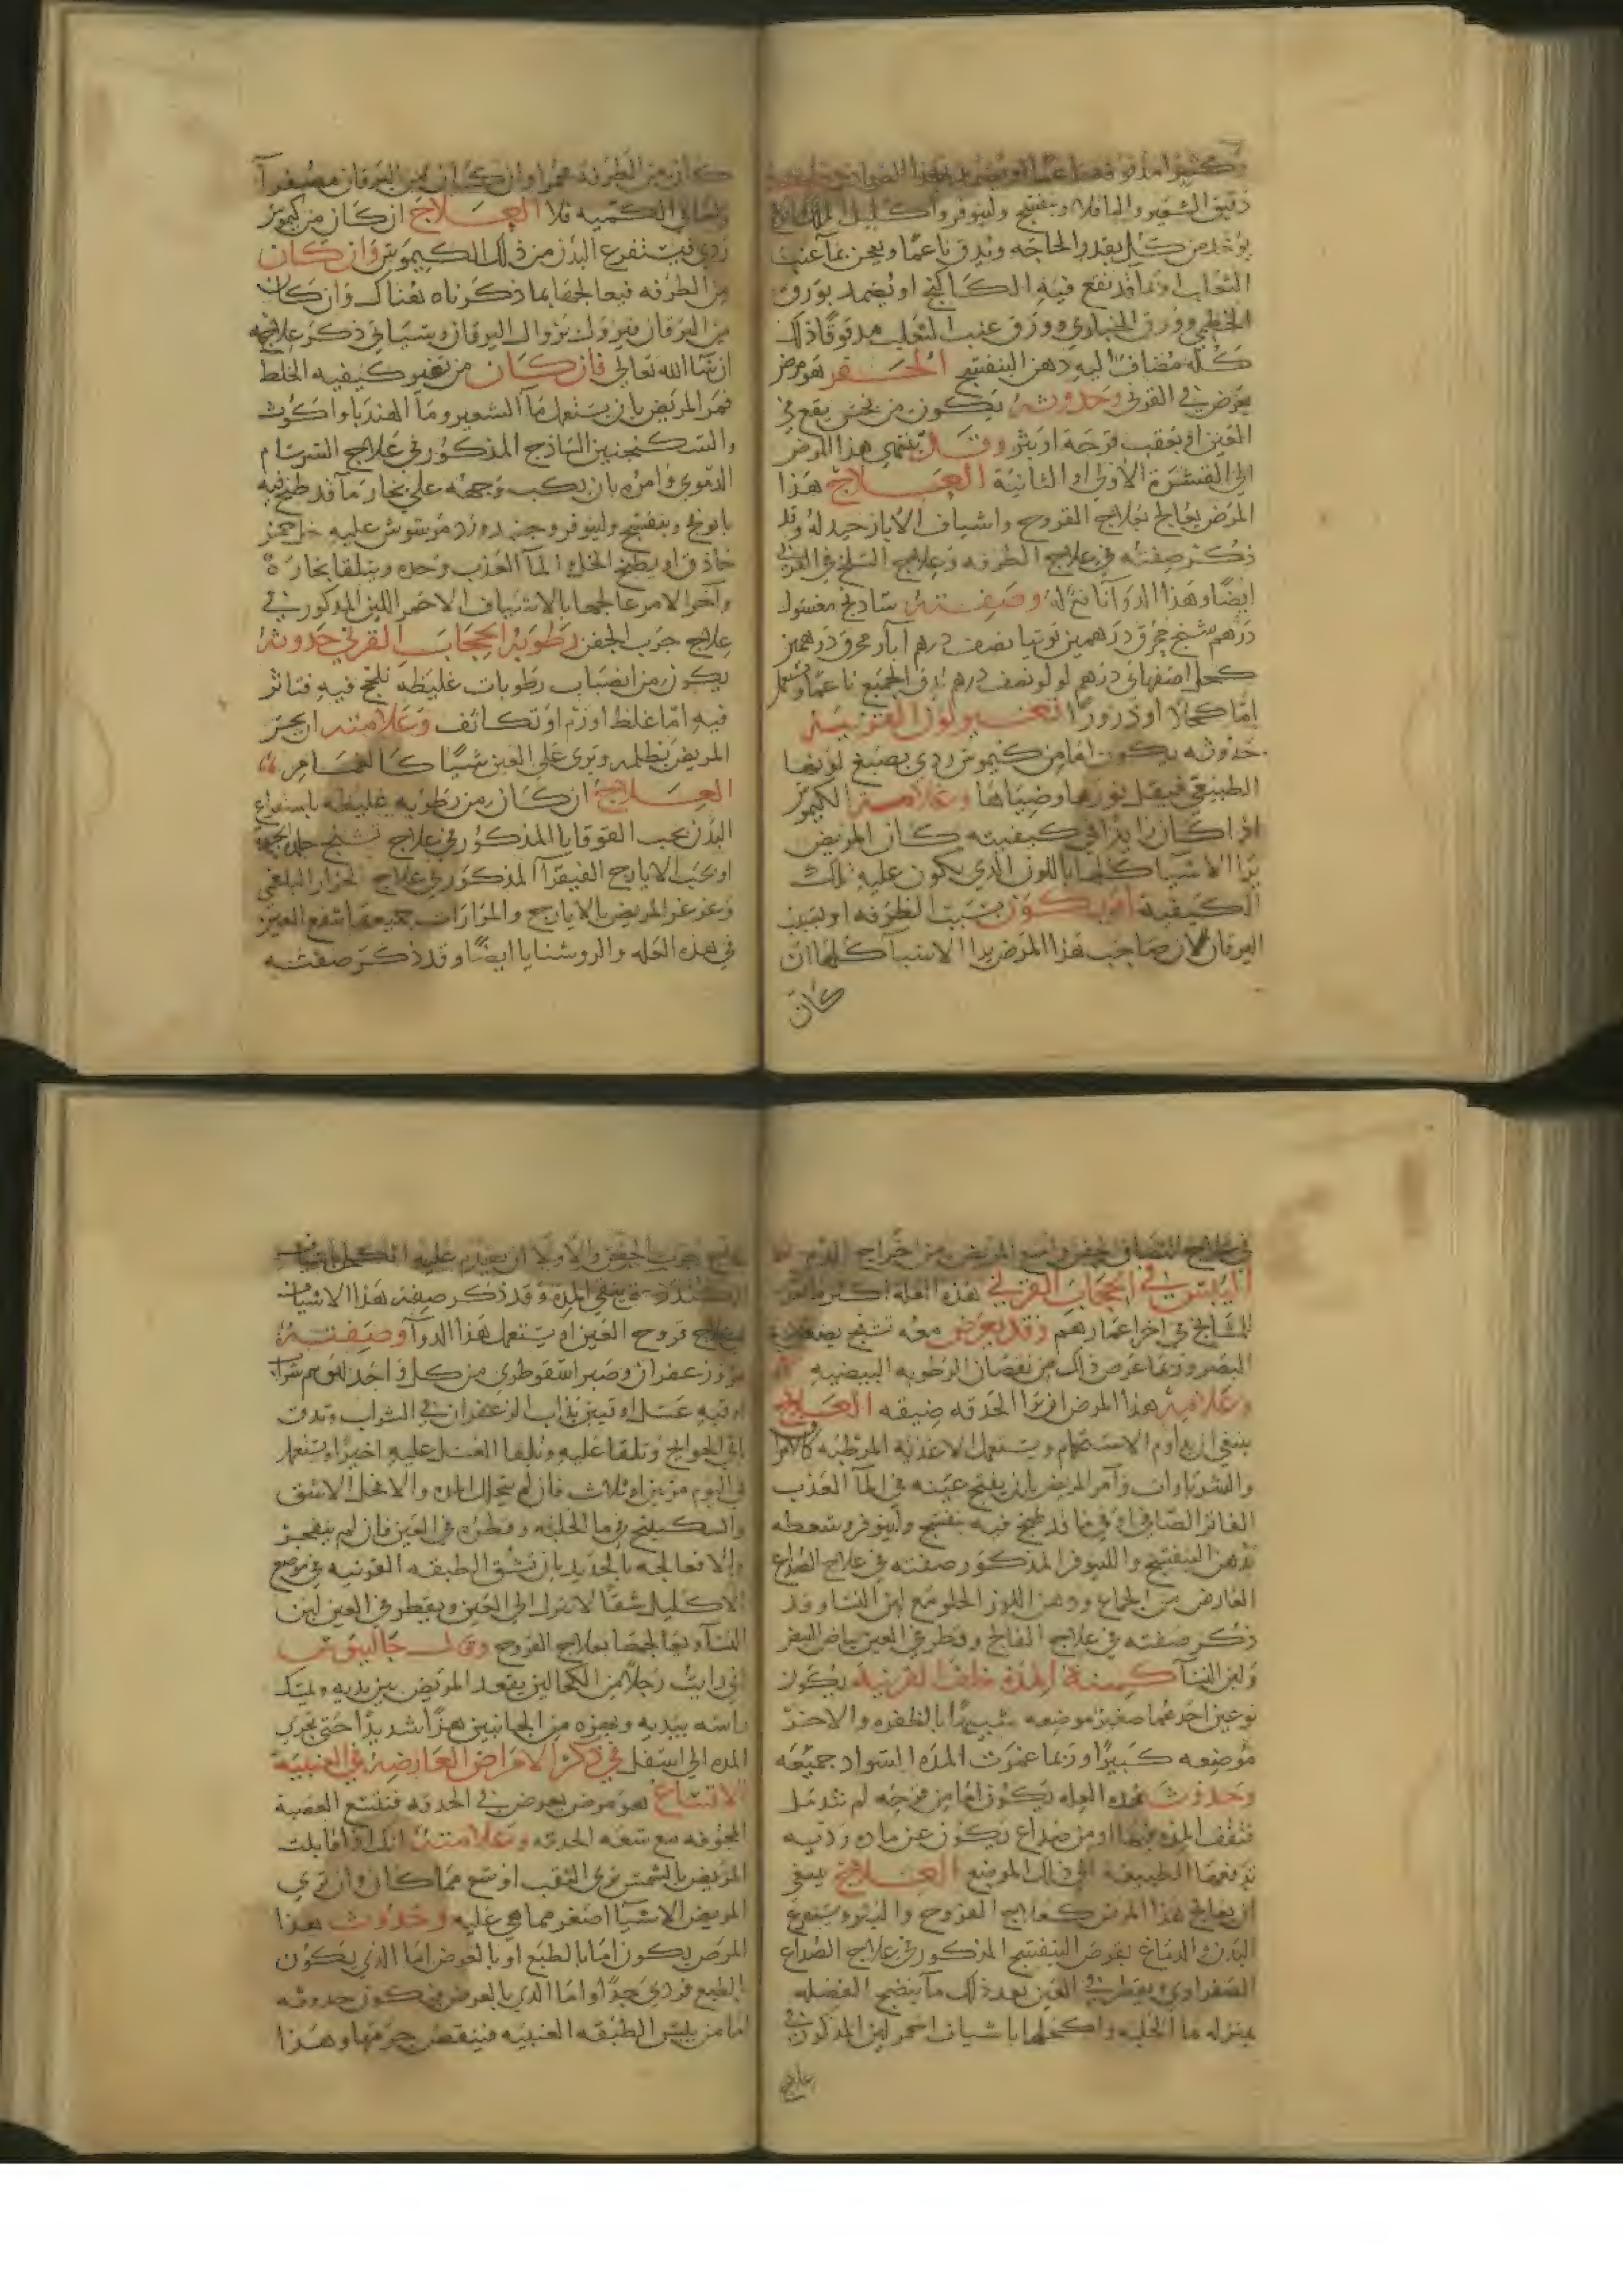 دقيق الشعير والباقلا وبنفسج ولينوفر واكليل الملك
يوخذ من كل بقدر الحاجه ويدق ناعما ويعجن بمآ عنب
الثعلب او بما قد نقع فيه الكاكنج او يضمد بورق
الخطمي وورق الخبازي وورق عنب الثعلب مدقوقا ذلك
كله مضاف اليه دهن البنفسج الحفر هو مرض
يعرض في القرني وحدوثه يكون من نخس يقع في
العين او بعقب قرحة او بثر وقال ينتهي هذا المرض
الي القشرة الاولي او الثانية العلاج هذا
المرض يعالج بعلاج القروح واشياف الابار جيد له وقد
ذكر صفته في علاج الطرفه وعلاج السلخ في القرني
ايضا وهذا الدوآ نافع له وصفته شادنج مغسول
درهم شنج محرق درهمين توتيا نصف درهم آبار محرق درهمين
كحل اصفهاني درهم لولو نصف درهم يدق الجميع ناعما ويستعمل
إما كحلا او ذرورا تغير لون القرنية
حدوثه يكون اما من كيموس ردي يصبغ لونها
الطبيعي فيقل نورها وضياها وعلامة الكيموس
اذا كان زايدا في كيفيته كان المريض
يرا الاشيا كلها باللون الذي يكون عليه تلك
الكيفية او يكون بسبب الطرفه او بسبب
اليرقان لان صاحب هذا المرض يرا الاشيآ كلها ان
كان
كان من الطرفة حمرا وان كان من اليرقان مصفرآ
العلاج ان كان من كيموس
ردي فيستفرغ البدن من ذلك الكيموس وان كان
من الطرفه فيعالجها بما ذكرناه هناك وان كان
من اليرقان فيزول بزوال اليرقان وسياتي ذكر علاجه
ان شا الله تعالي فان كان من تغير كيفيه الخلط
فمر المريض بان يستعمل مآ الشعير ومآ الهندبا واكوث
والسكنجنبين الساذج المذكور في علاج السرسام
الدموي وامره بان يكب وجهه علي بخار مآ قد طبخ فيه
بابونج وبنفسج ولينوفر وجند ورد مرشوش عليه خل خمر
حاذق او يطبخ الخل والمآ العذب وحده ويتلقا بخاره
وآخر الامر عالجها بالاشياف الاحمر اللين المذكور في
علاج جرب الجفن رطوبة الحجاب القرني حدوثه
يكون من انصباب رطوبات غليظه تلحج فيه فتاثر
فيه اما غلظ او ورم او تكاثف وعلامته ان يحس
المريض بظلمه ويري علي العين شيا كالغمام
العلاج ان كان من رطوبه غليظه باستفراغ
البدن بحب القوقايا المذكور في علاج تشنج جلد الجبهة
او بحب الايارج الفيقرا المذكور في علاج البلغمي
وغرغر المريض بالايارج والمرارات جميعها تنفع العين
في هذه العله والروشنايا ايضا وقد ذكر صفته
في علاج التصاق الجفن من اخراج الدم
اليبس في الحجاب القرني هذه العله اكثر ما تعرض
للمشايخ في اخر اعمارهم وقد يعرض معه تشنج
البصر وربما عرض ذلك من نقصان الرطوبه البيضيه
وعلامة هذا المرض ان يرا الحدقه ضيقه العلاج
ينبغي ان يداوم الاستحمام ويستعمل الاغذيه المرطبه
والشرابات وآمر المريض بان يفتح عينه في المآ العذب
الفاتر الصافي او في ما قد طبخ فيه بنفسج ولينوفر وسعطه
بدهن البنفسج واللينوفر المذكور صفته في علاج الصداع
العارض من الجماع ودهن اللوز الحلو مع لبن النسا وقد
ذكر صفته في علاج الفالج وقطر في العين بياض البيض
ولبن النسآ كمنة المدة خلف القرنيه يكون
نوعين احدهما صغير موضعه شبيها بالظفره والاخر
موضعه كبيرا وربما عمرت المده السواد جميعه
وحدوث هذه العله يكون اما من قرحه لم تندمل
فتقف المده فيها او من صداع يكون عن ماده رديه
تدفعها الطبيعه الي ذلك الموضع العلاج ينبغي
ان يعالج هذا المرض كعلاج القروح والبثوره يستفرغ
البدن والدماغ بقرص البنفسج المذكور في علاج الصداع
الصفراوي ويقطر في العين بعد ذلك مآ ينضج الفضله
بمنزله ما الحلبه واكحلها باشياف احمر لين المذكور في
علاج
علاج جرب الجفن
وقد ذكر صفة هذا الاشياف
قروح العين او يستعمل هذا الدوآ وصفته
زعفران وصبر اسقوطري من كل واحد
اوقيه عسل اوقيتين يذاب الزعفران في الشراب وتدق
باقي الحوايج وتلقا عليه ويلقا العسل عليه اخيرا ويستعمل
في اليوم مرتين او ثلاث فان لم يتحلل المده والا فحل الاشق
والسكبينج في ما الحلبه وقطره في العين فان لم ينفجر
والا فعالجه بالحديد بان تشق الطبقه القرنيه في موضع
الاكليل شقا لا ينزل الي العين ويقطر في العين لبن
النسآ ويعالجها بعلاج القروح وقال جالينوس
اني رايت رجلا من الكحالين يقعد المريض بين يديه ويمسك
راسه بيديه ويهزه من الجانبين هزا شديدا حتي تجري
المده الي اسفل في ذكر الامراض العارضه في العنبية
الاتساع هو مرض يعرض في الحدقه فتتسع العصبة
المجوفه مع سعة الحدقه وعلامته انك اذا قابلت
المريض بالشمس تري الثقب اوسع مما كان وان تري
المريض الاشيآ اصغر مما هي عليه وحدوث هذا
المرض يكون اما بالطبع او بالعرض اما الذي يكون
بالطبع فردي جدا واما الذي بالعرض فيكون حدوثه
اما من يبس الطبقه العنبيه فينقص جرمها وهذا